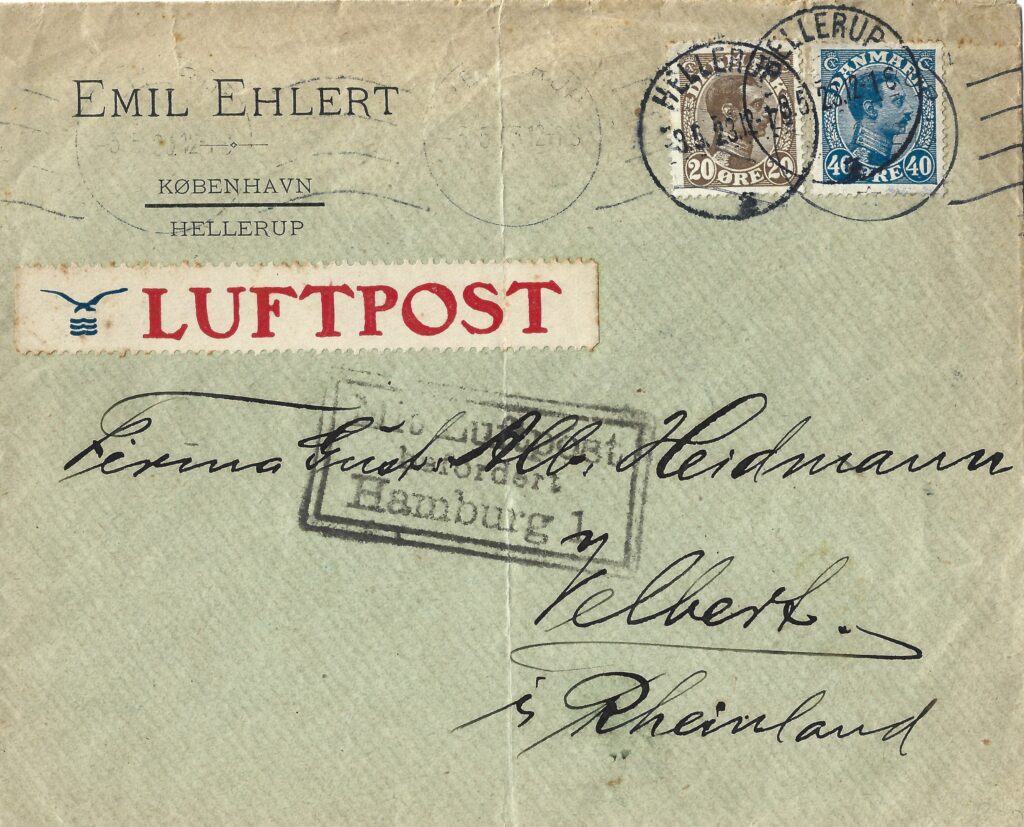 EMIL EHLERT
KØBENHAVN
HELLERUP
HELLERUP
HELLERUP
DANMARK
20 ØRE 20
40 ØRE 40
LUFTPOST
Mit Luftpost
befördert
Hamburg 1
Firma Gust. Alb. Heidmann
Velbert.
i/ Rheinland